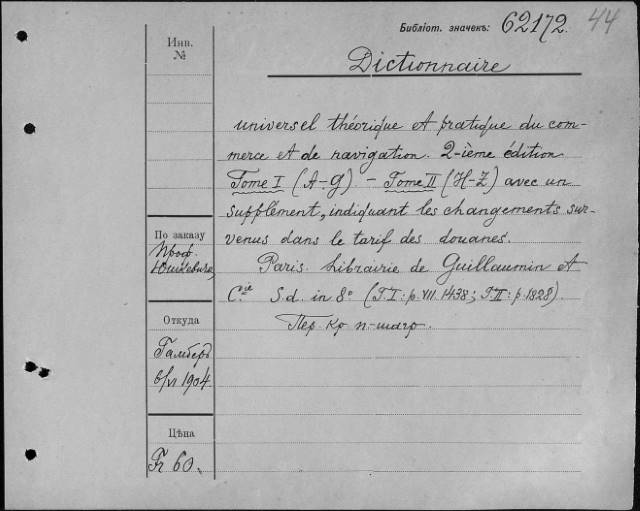 Библіот. значекъ: 62172. 44
Инв.
№
Dictionnaire
universel théorique et pratique du com-
merce et de navigation. 2-ième édition
Tome I (A-G). - Tome II (H-Z) avec un
supplément, indiquant les changements sur-
venus dans le tarif des douanes.
Paris. Librairie de Guillaumin et
Cie S.d. in 8° (T.I: p. VIII. 1438; T.II: p. 1828).
Пер. кр п-шагр.
По заказу
Проф.
Откуда
6/VI 1904
Цѣна
Fr 60.